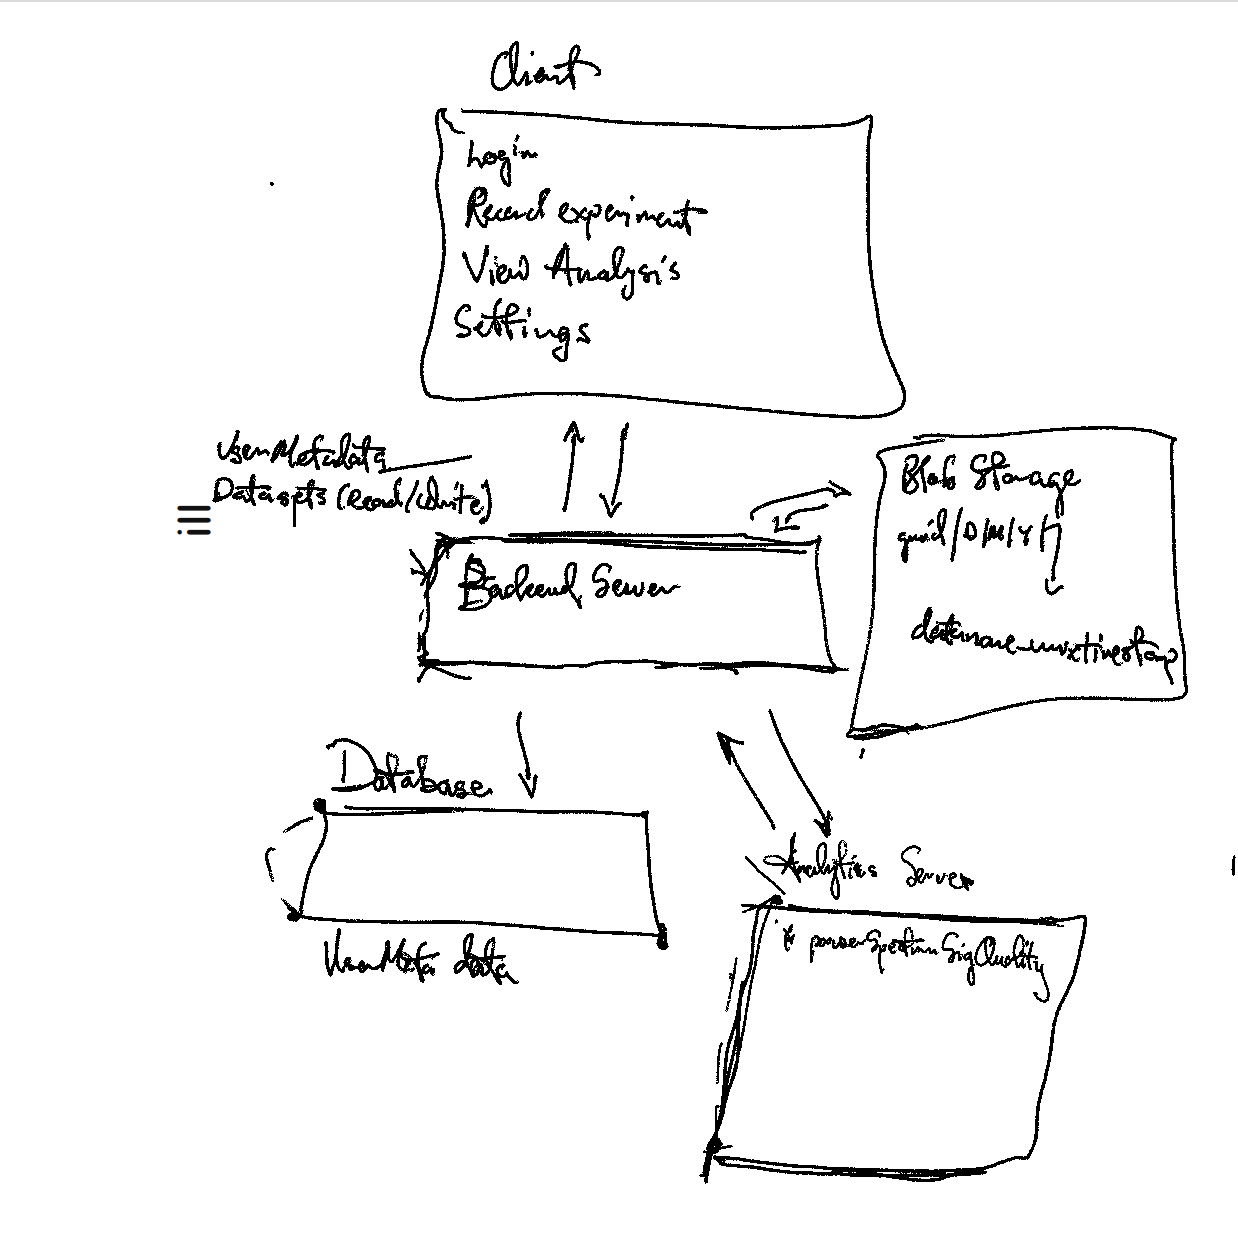 Client
Login
Record experiment
View Analysis
Settings
UserMetadata
Datasets (Read/Write)
Blob Storage
guid/D/M/Y/
dataname_unixtimestamp
Backend Server
Database
UserMeta data
Analytics Server
* powerSpectrumSigQuality